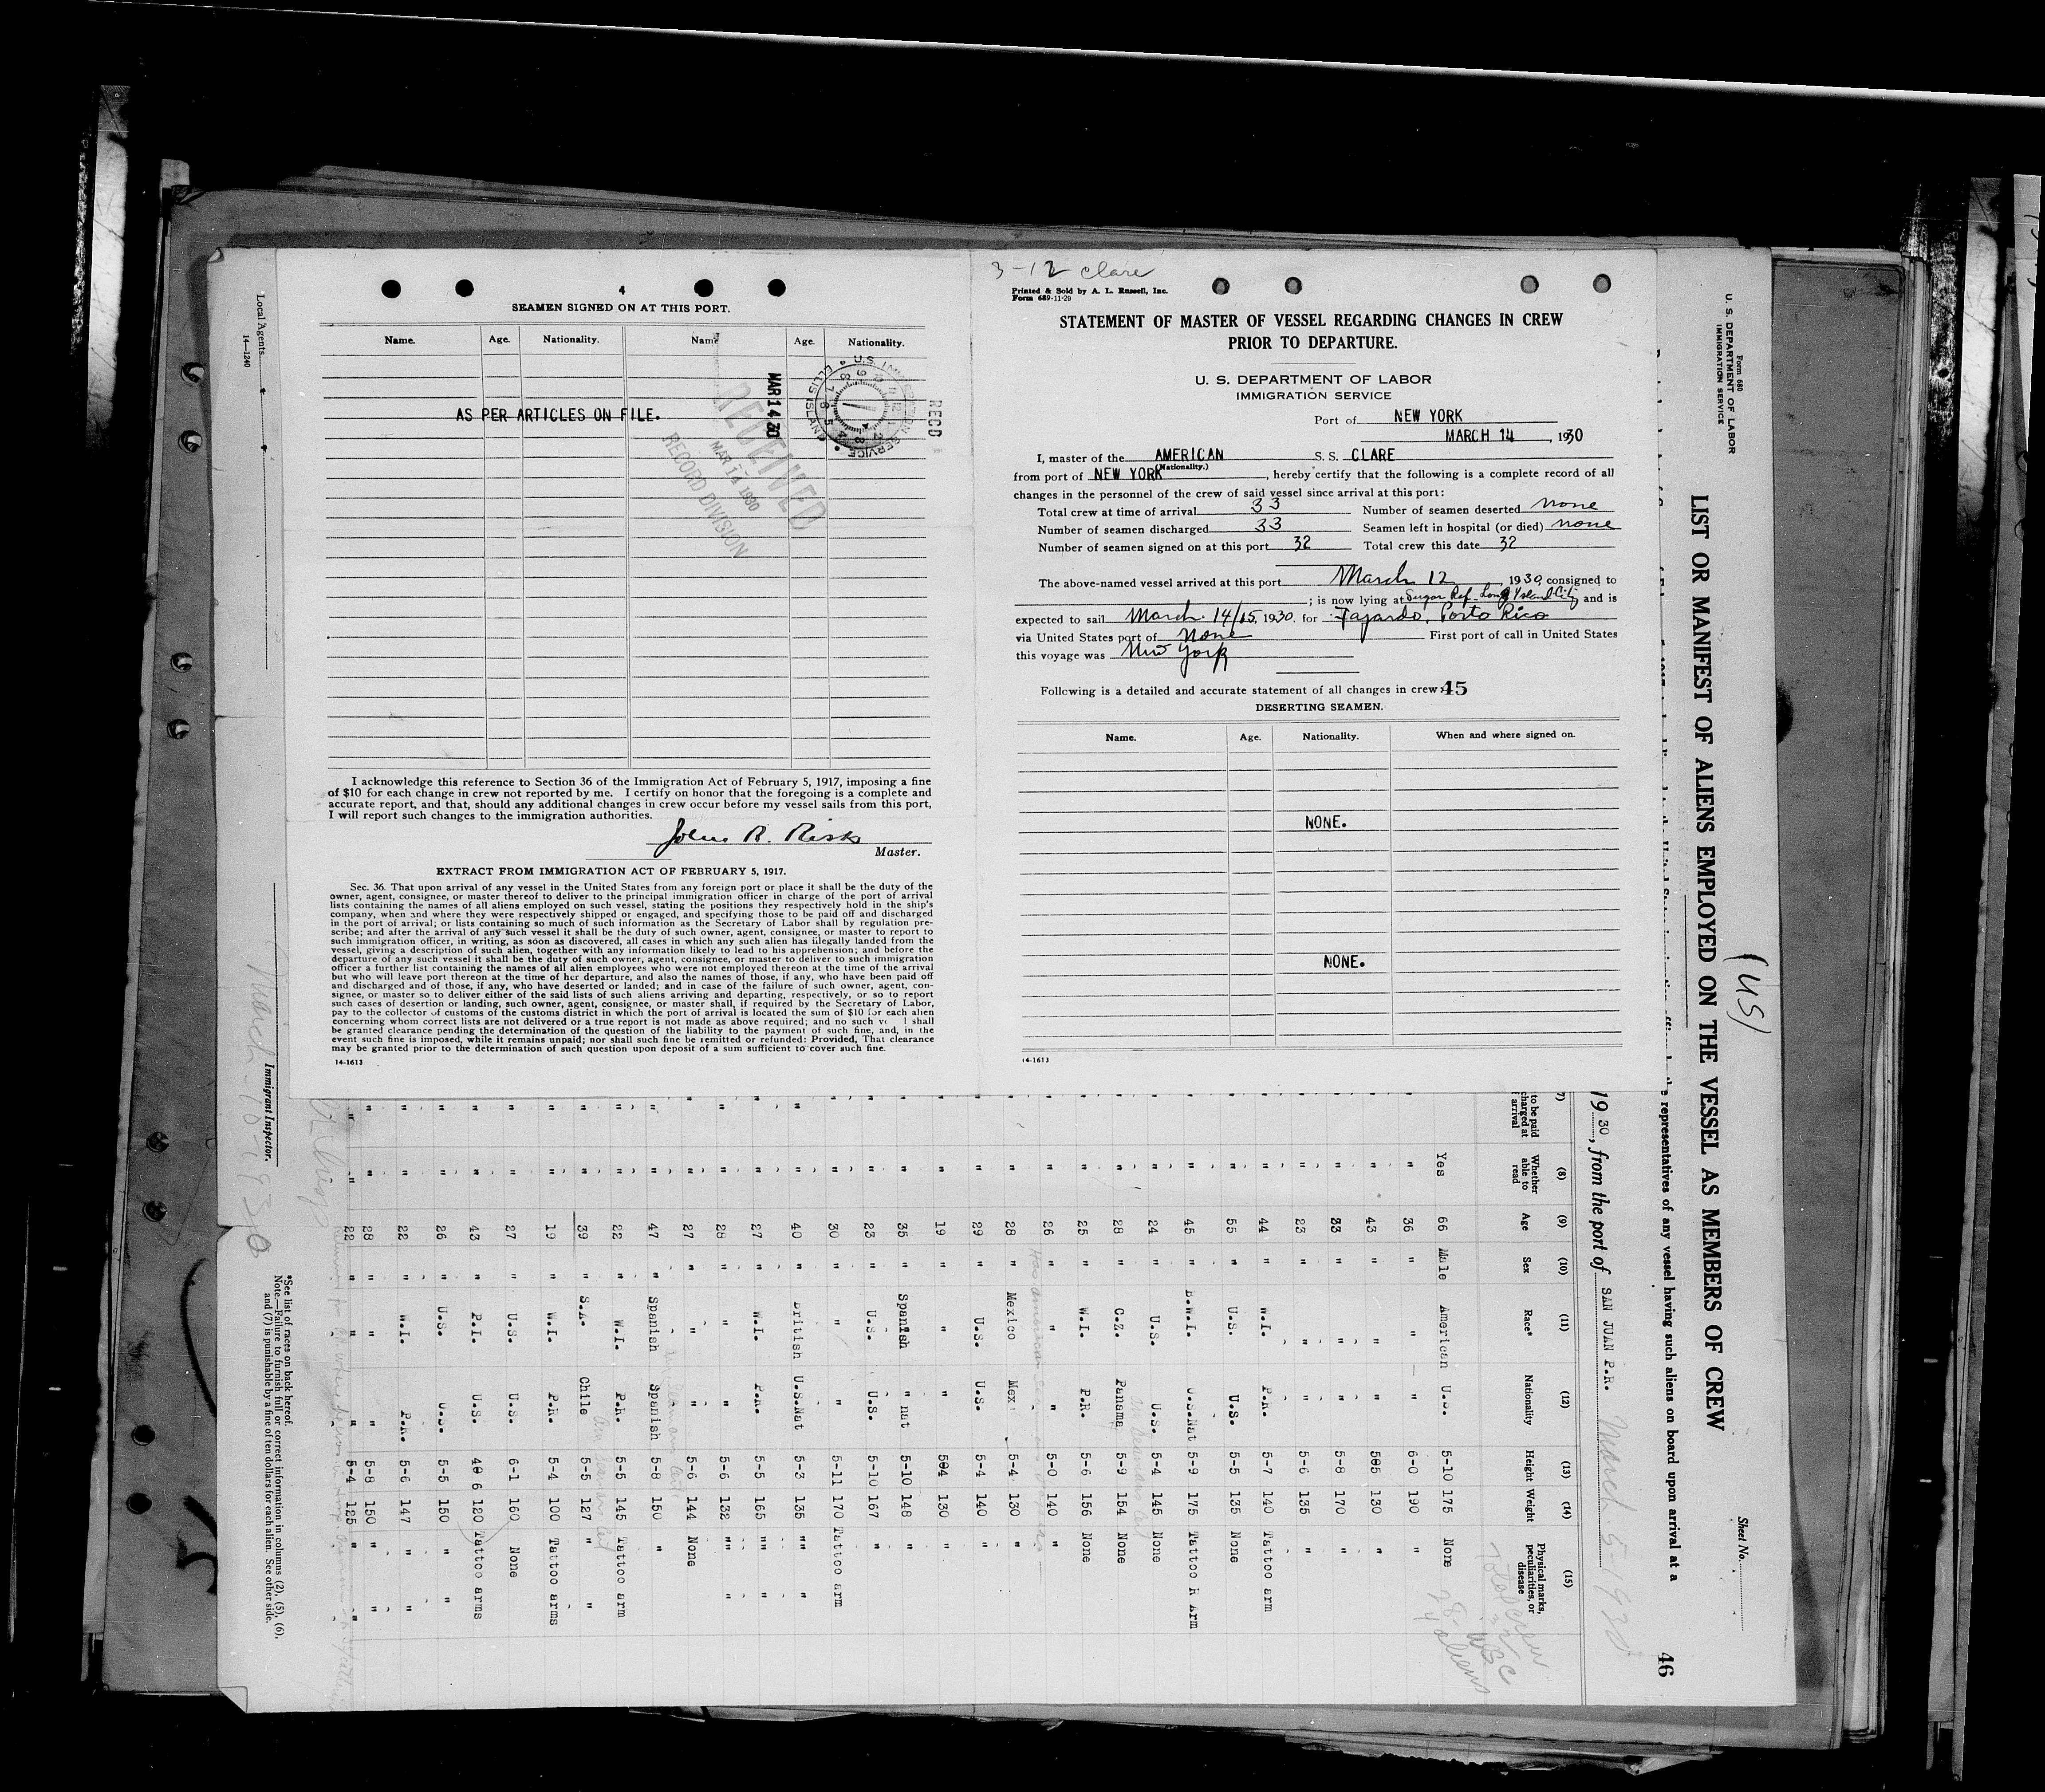 4
SEAMEN SIGNED ON AT THIS PORT.
Name. Age. Nationality. Name Age. Nationality.
AS PER ARTICLES ON FILE.
RECEIVED
MAR 14 1930
RECORD DIVISION
MAR 14 30
U.S. IMMIGRATION SERVICE
ELLIS ISLAND
RECD
I acknowledge this reference to Section 36 of the Immigration Act of February 5, 1917, imposing a fine
of $10 for each change in crew not reported by me. I certify on honor that the foregoing is a complete and
accurate report, and that, should any additional changes in crew occur before my vessel sails from this port,
I will report such changes to the immigration authorities.
John R. Risk
Master.
EXTRACT FROM IMMIGRATION ACT OF FEBRUARY 5, 1917.
Sec. 36. That upon arrival of any vessel in the United States from any foreign port or place it shall be the duty of the
owner, agent, consignee, or master thereof to deliver to the principal immigration officer in charge of the port of arrival
lists containing the names of all aliens employed on such vessel, stating the positions they respectively hold in the ship's
company, when and where they were respectively shipped or engaged, and specifying those to be paid off and discharged
in the port of arrival; or lists containing so much of such information as the Secretary of Labor shall by regulation pre-
scribe; and after the arrival of any such vessel it shall be the duty of such owner, agent, consignee, or master to report to
such immigration officer, in writing, as soon as discovered, all cases in which any such alien has illegally landed from the
vessel, giving a description of such alien, together with any information likely to lead to his apprehension; and before the
departure of any such vessel it shall be the duty of such owner, agent, consignee, or master to deliver to such immigration
officer a further list containing the names of all alien employees who were not employed thereon at the time of the arrival
but who will leave port thereon at the time of her departure, and also the names of those, if any, who have been paid off
and discharged and of those, if any, who have deserted or landed; and in case of the failure of such owner, agent, con-
signee, or master so to deliver either of the said lists of such aliens arriving and departing, respectively, or so to report
such cases of desertion or landing, such owner, agent, consignee, or master shall, if required by the Secretary of Labor,
pay to the collector of customs of the customs district in which the port of arrival is located the sum of $10 for each alien
concerning whom correct lists are not delivered or a true report is not made as above required; and no such ve l shall
be granted clearance pending the determination of the question of the liability to the payment of such fine, and, in the
event such fine is imposed, while it remains unpaid; nor shall such fine be remitted or refunded: Provided, That clearance
may be granted prior to the determination of such question upon deposit of a sum sufficient to cover such fine.
14-1613
3-12 Clare
Printed & Sold by A. L. Russell, Inc.
Form 689-11-29
STATEMENT OF MASTER OF VESSEL REGARDING CHANGES IN CREW
PRIOR TO DEPARTURE.
U. S. DEPARTMENT OF LABOR
IMMIGRATION SERVICE
Port of NEW YORK
MARCH 14, 1930
I, master of the AMERICAN S. S. CLARE
(Nationality.)
from port of NEW YORK, hereby certify that the following is a complete record of all
changes in the personnel of the crew of said vessel since arrival at this port:
Total crew at time of arrival 33 Number of seamen deserted none
Number of seamen discharged 33 Seamen left in hospital (or died) none
Number of seamen signed on at this port 32 Total crew this date 32
The above-named vessel arrived at this port March 12, 1930, consigned to
; is now lying at Sugar Ref. Long Island City and is
expected to sail March 14/15, 1930, for Fajardo, Porto Rico
via United States port of None First port of call in United States
this voyage was New York
Following is a detailed and accurate statement of all changes in crew: 45
DESERTING SEAMEN.
Name. Age. Nationality. When and where signed on.
NONE.
NONE.
14-1613
Form 680
U. S. DEPARTMENT OF LABOR
IMMIGRATION SERVICE
LIST OR MANIFEST OF ALIENS EMPLOYED ON THE VESSEL AS MEMBERS OF CREW
(US)
Sheet No.
46
representatives of any vessel having such aliens on board upon arrival at a
1930, from the port of SAN JUAN P.R. March 5-1930
7) to be paid charged at arrival
(8) Whether able to read
(9) Age
(10) Sex
(11) Race*
(12) Nationality
(13) Height
(14) Weight
(15) Physical marks, peculiarities, or disease
Yes 66 Male American U.S. 5-10 175 None
" 36 " " " 6-0 190 "
" 43 " " " 505 130 "
" 33 " " " 5-8 170 "
" 23 " " " 5-6 135 "
" 44 " W.I. P.R. 5-7 140 Tattoo arm
" 55 " U.S. U.S. 5-5 135 None
" 45 " B.W.I. U.S.Nat 5-9 175 Tattoo R Arm
" 24 " U.S. U.S. 5-4 145 None
" 28 " C.Z. Panama 5-9 154 None
" 25 " W.I. P.R. 5-6 156 None
" 26 " " 5-0 140 "
" 28 " Mexico Mex 5-4 130 "
" 29 " U.S. U.S. 5-4 140 "
" 19 " " " 504 130 "
" 35 " Spanish " nat 5-10 148 "
" 23 " U.S. U.S. 5-10 167 "
" 30 " " " 5-11 170 Tattoo arm
" 40 " British U.S.Nat 5-3 135 " "
" 27 " W.I. P.R. 5-5 165 " "
" 28 " " " 5-6 132 " "
" 27 " " " 5-6 144 None
" 47 " Spanish Spanish 5-8 150 "
" 22 " W.I. P.R. 5-5 145 Tattoo arm
" 39 " S.A. Chile 5-5 127 " "
" 19 " W.I. P.R. 5-4 100 Tattoo arms
" 27 " U.S. U.S. 6-1 160 None
" 43 " P.I. U.S. 6 120 Tattoo arms
" 26 " U.S. U.S. 5-5 150 " "
" 22 " W.I. P.R. 5-6 147 " "
" 28 " " " 5-8 150 " "
" 22 " " " 5-4 125 " "
Local Agents
14-1240
Immigrant Inspector.
March 10-1930
*See list of races on back hereof.
Note.—Failure to furnish full or correct information in columns (2), (5), (6),
and (7) is punishable by a fine of ten dollars for each alien. See other side.